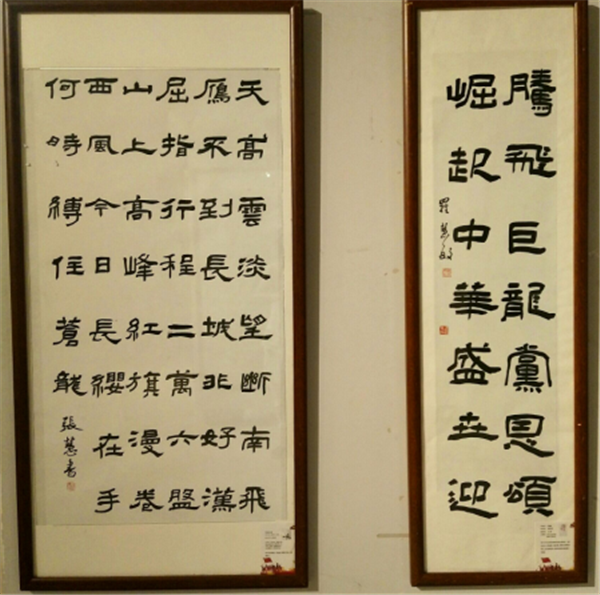 天高雲淡望斷南飛
鴈不到長城非好漢
屈指行程二萬六盤
山上高峰紅旗漫卷
西風今日長纓在手
何時縛住蒼龍
張慧書
騰飛巨龍黨恩頌
崛起中華盛世迎
慧敏